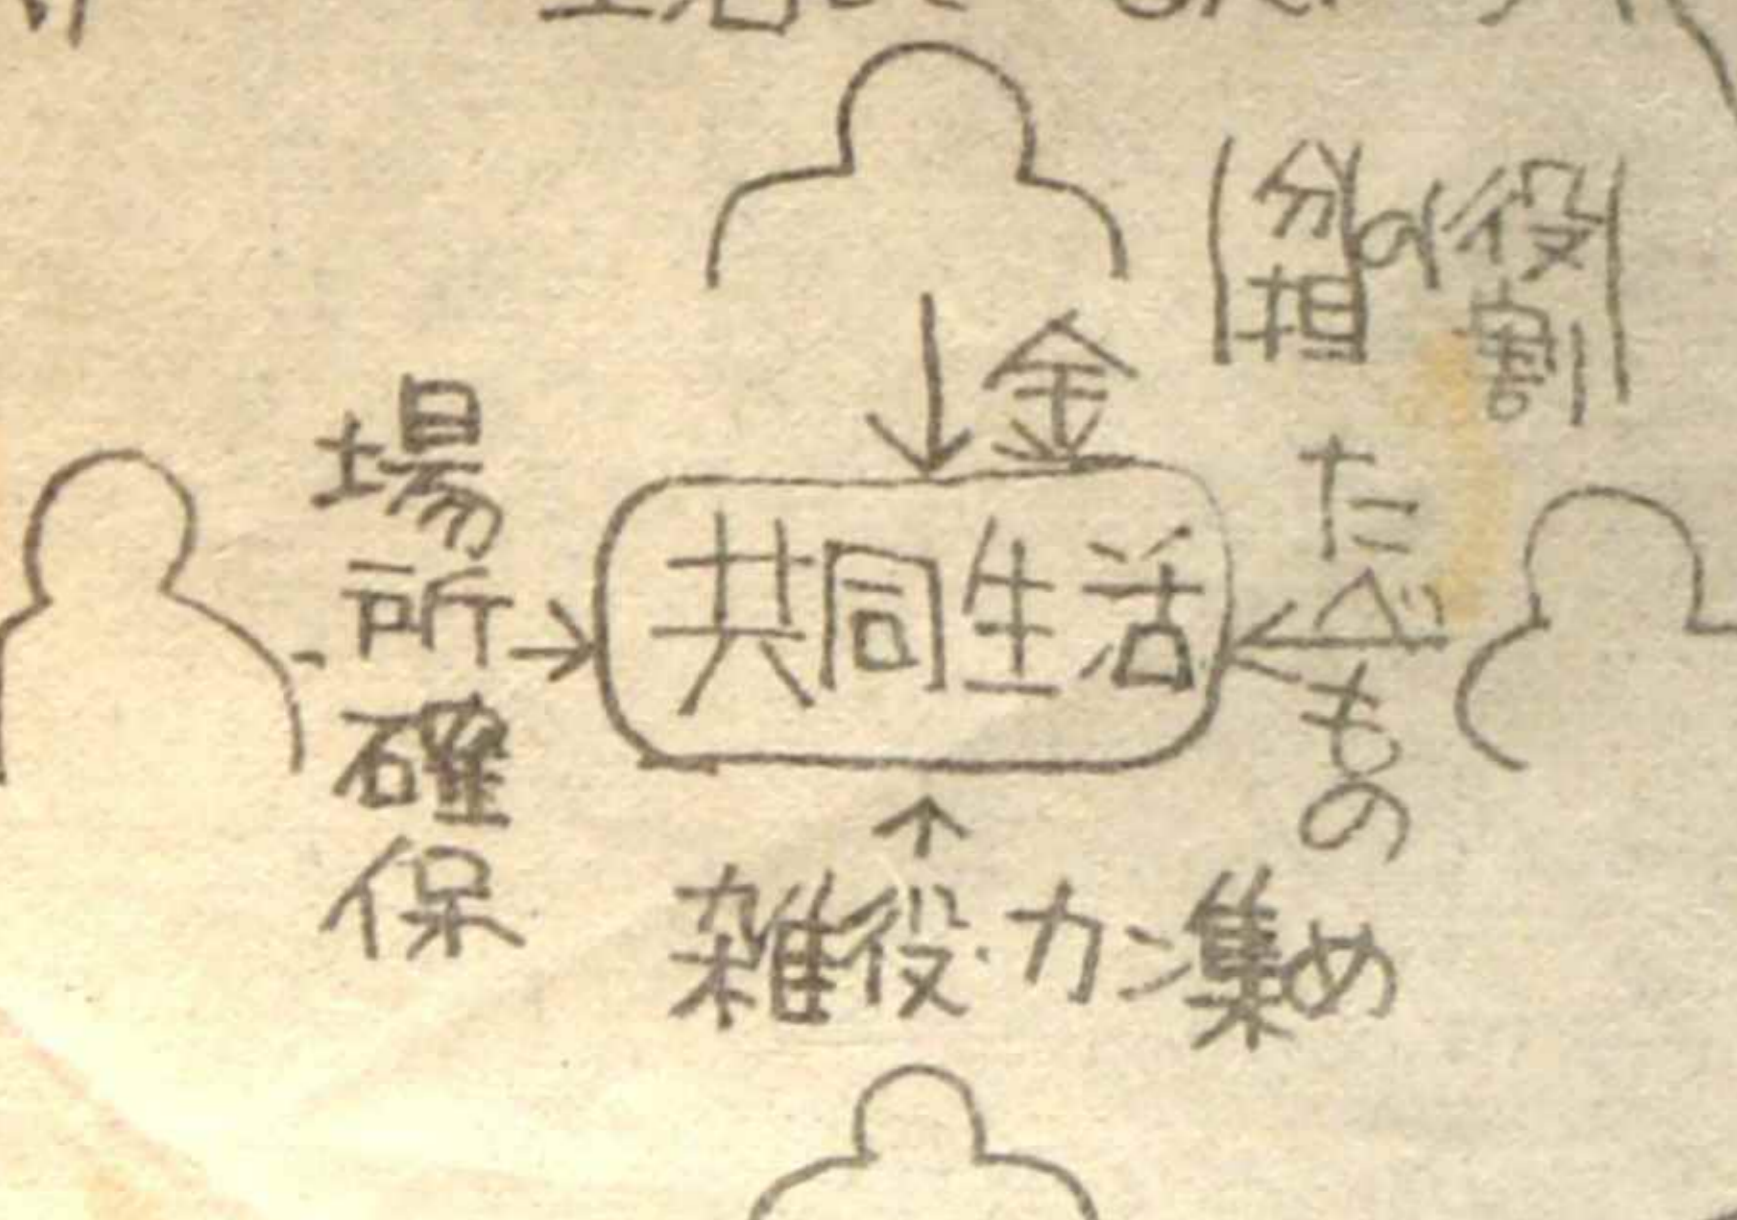 役割の分担
金
場所確保
共同生活
たべもの
雑役・カン集め